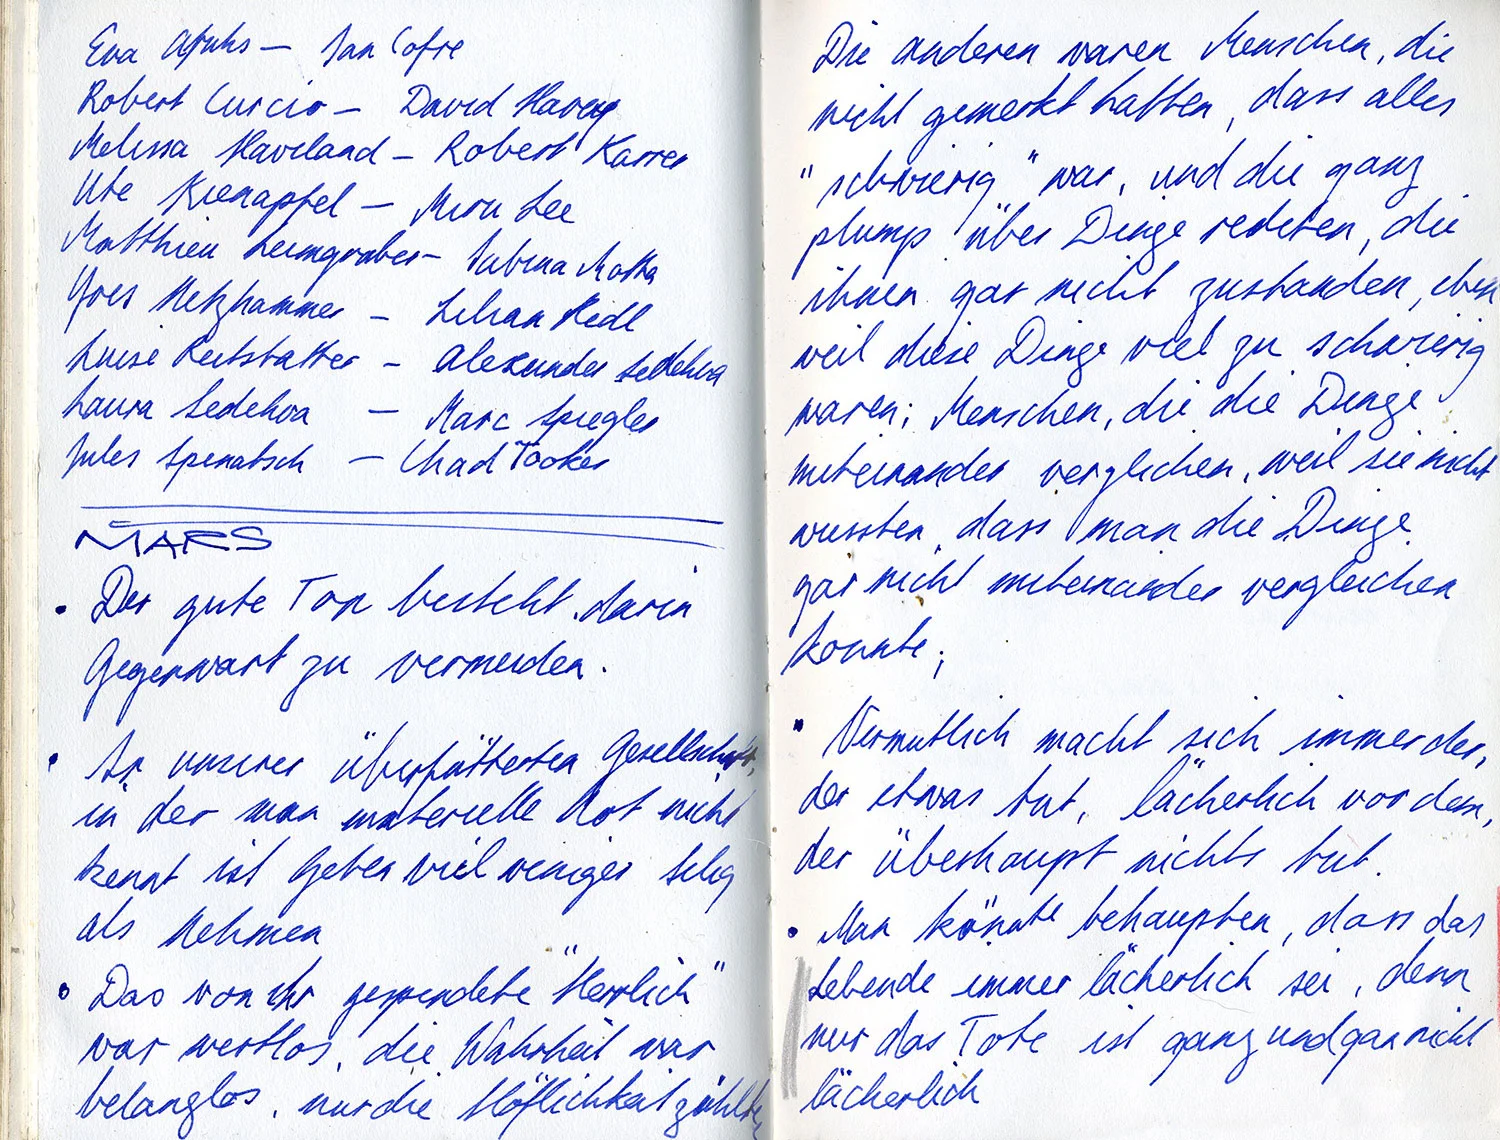 Eva Afuhs – Jan Cofre
Robert Curcio – David Harvey
Melissa Haveland – Robert Karrer
Ute Kienapfel – Miou Lee
Matthieu Leimgruber – Sabina Motta
Yves Netzhammer – Lilian Riedl
Luise Reitstätter – Alexander Sedelnva
Laura Sedehoa – Marc Spiegler
Jules Spinatsch – Chad Tooker
MARS
• Der gute Ton besteht darin
Gegenwart zu vermeiden.
• In unserer überfütterten Gesellschaft,
in der man materielle Not nicht
kennt ist Geben viel weniger selig
als Nehmen
• Das von ihr gespendete "Herrlich"
war wertlos, die Wahrheit war
belanglos, nur die Höflichkeit zählte
Die anderen waren Menschen, die
nicht gemerkt hatten, dass alles
"schwierig" war, und die ganz
plump über Dinge redeten, die
ihnen gar nicht zustanden, eben
weil diese Dinge viel zu schwierig
waren; Menschen, die die Dinge
miteinander verglichen, weil sie nicht
wussten, dass man die Dinge
gar nicht miteinander vergleichen
konnte;
• Vermutlich macht sich immer der,
der etwas tut, lächerlich vor dem,
der überhaupt nichts tut.
• Man könnte behaupten, dass das
Lebende immer lächerlich sei, denn
nur das Tote ist ganz und gar nicht
lächerlich